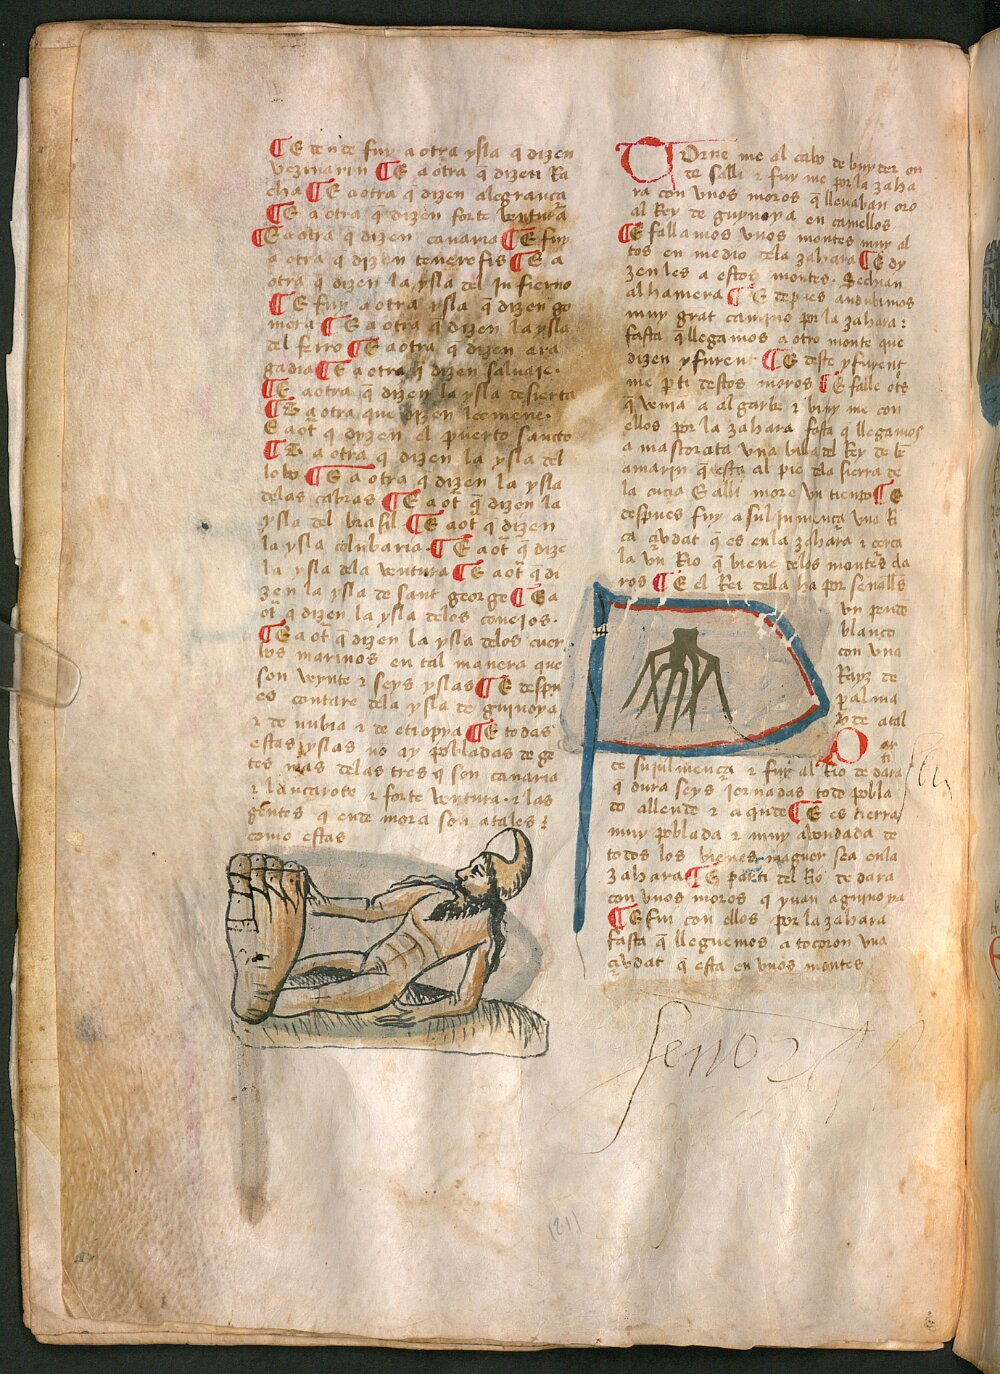 E dende fuy a otra ysla q̄ dizen
vezmarin E a otra q̄ dizen Ra
cha E a otra q̄ dizen alegrança
E a otra q̄ dizen forte ventura
E a otra q̄ dizen canaria E fuy
a otra q̄ dizen tenerefis E a
otra q̄ dizen la ysla del Infierno
E fuy a otra ysla q̄ dizen go
mera E a otra q̄ dizen la ysla
del ferro E a otra q̄ dizen ara
gadia E a otra q̄ dizen saluaje.
E a otra q̄ dizen la ysla desierta
E a otra que dizen lecmene.
E a ot̄ q̄ dyzen el puerto sancto
E a otra q̄ dizen la ysla del
lobo E a otra q̄ dizen la ysla
delas cabras E a ot̄ q̄ dizen la
ysla del brasil E a ot̄ q̄ dizen
la ysla colunbaria. E a ot̄ q̄ dizē
la ysla dela ventura E a ot̄ q̄ di
zen la ysla de sant george E a
ot̄ q̄ dizen la ysla delos conejos.
E a ot̄ q̄ dizen la ysla delos cuer
bos marinos en tal manera que
son veynte ⁊ seys yslas E despu
es contare dela ysla de guinoya
⁊ de nubia ⁊ de etiopya E todas
estas yslas no ay pobladas de ge
tes mas delas tres q̄ son canaria
⁊ lançarote ⁊ forte ventura. ⁊ las
gentes q̄ ende mora son atales:
como estas
Torne me al cabo de buyder on
de salli ⁊ fuy me por la zaha
ra con vnos moros q̄ lleuaban oro
al Rey de guynoya en camellos
E fallamos vnos montes muy al
tos en medio dela zahara E dy
zen les a estos montes. Sechian
alhamera E depues andubimos
muy grāt camino por la zahara:
fasta q̄ llegamos a otro monte que
dizen yfurent E deste yfurent
me p̄ti destos moros E falle ot̄s
q̄ venia a algarbe ⁊ viny me con
ellos por la zahara fasta q̄ llegamos
a mascrota vna billa del Rey de bē
amarin q̄ esta al pie dla sierra de
la cuçia E alli more vn tienpo E
despues fuy a suljumença vna Ri
ca çibdat q̄ es en la zahara ⁊ cerca
la vn Rio q̄ biene delos montes da
ros E el Rei della ha por señalls
vn pendō
blanco
con vna
Rayz de
palma
⁊ de atal
Par
ti
de sujulmença ⁊ fuy al Rio de dara
q̄ dura seys jornadas todo pobla
do allende ⁊ aqnde E es tierra
muy poblada ⁊ muy abondada de
todos los bienes maguer sea en la
zahara E parti del Rio de dara
con vnos moros q̄ yuan a guinoya
E fui con ellos por la zahara
fasta q̄ lleguemos a tocoron vna
çibdat q̄ esta en vnos montes
señor